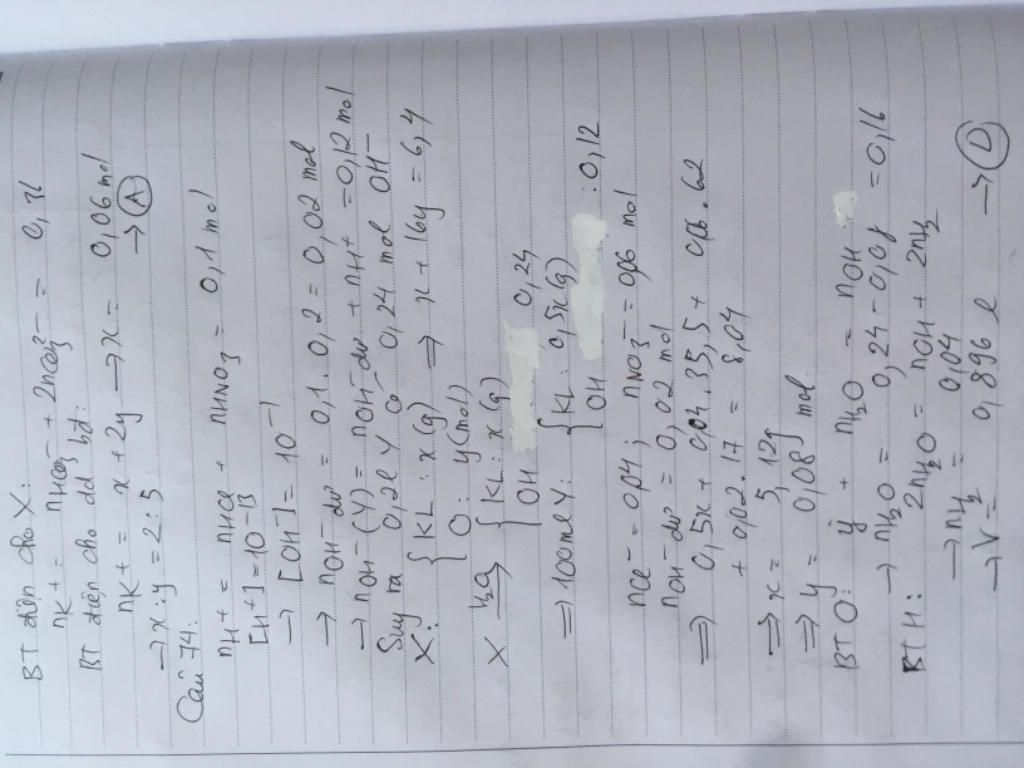 BT điện cho X:
nK+ = nHCO3- + 2nCO3 2- = 0,3l
BT điện cho dd bđ:
nK+ = x + 2y → x = 0,06 mol
→ x : y = 2 : 5 → Ⓐ
Câu 74:
nH+ = nHCl + nHNO3 = 0,1 mol
[H+] = 10^-13
→ [OH-] = 10^-1
→ nOH- dư = 0,1 . 0,2 = 0,02 mol
→ nOH- (Y) = nOH- dư + nH+ = 0,12 mol
Suy ra 0,2l Y có 0,24 mol OH-
X: { KL : x (g)
{ O : y (mol) ⇒ x + 16y = 6,4
X —H2O→ { KL : x (g)
{ OH 0,24
⇒ 100ml Y: { KL : 0,5x (g)
{ OH : 0,12
nCl- = 0,04 ; nNO3- = 0,06 mol
nOH- dư = 0,02 mol
⇒ 0,5x + 0,04 . 35,5 + 0,06 . 62
+ 0,02 . 17 = 8,04
⇒ x = 5,12g
⇒ y = 0,08 mol
BT O: y + nH2O = nOH
→ nH2O = 0,24 - 0,08 = 0,16
BT H: 2nH2O = nOH + 2nH2
→ nH2 = 0,04
→ V = 0,896 l → Ⓓ